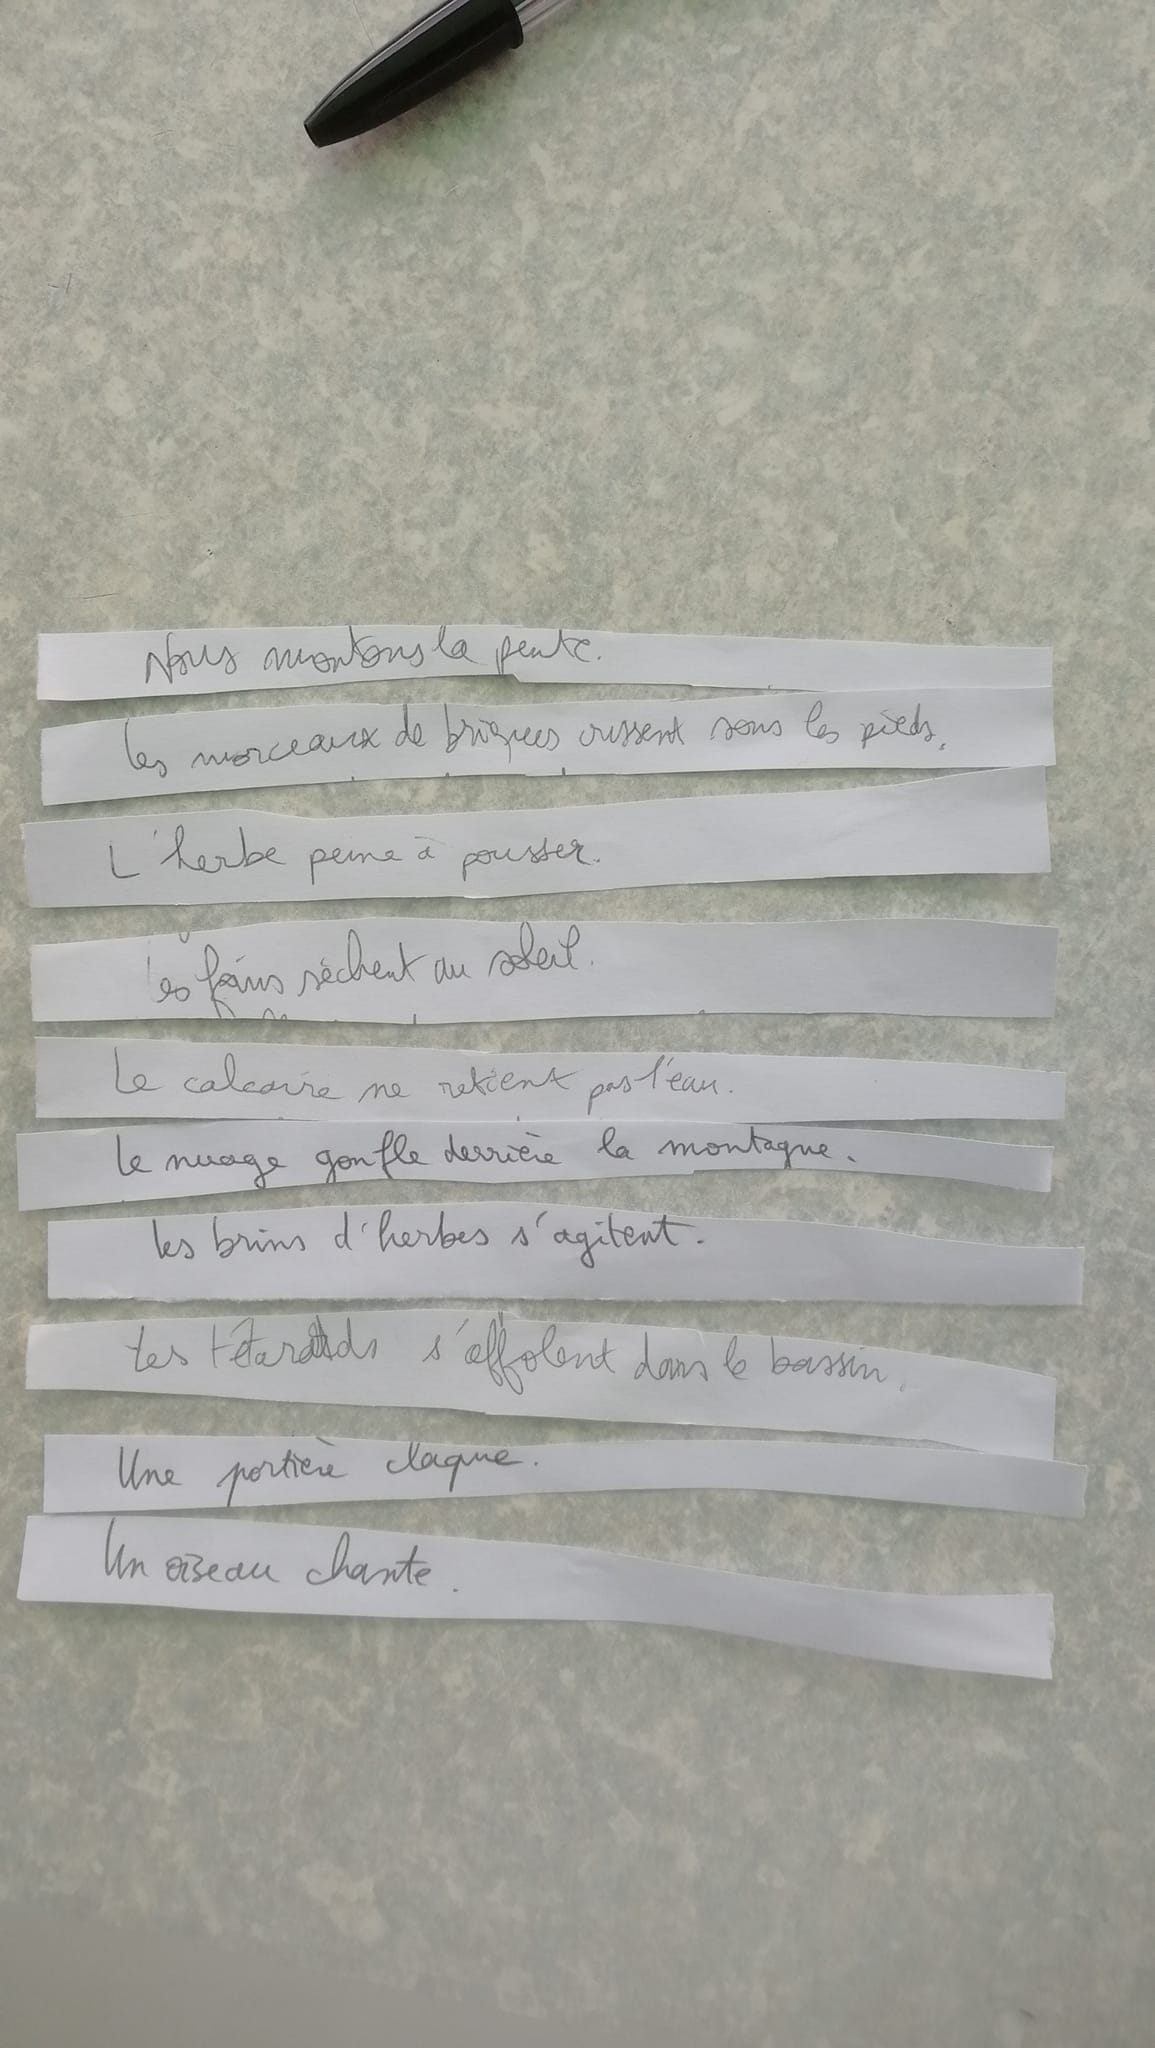 Nous montons la pente.
Les morceaux de briques crissent sous les pieds.
L'herbe peine à pousser.
Les foins sèchent au soleil.
Le calcaire ne retient pas l'eau.
Le nuage gonfle derrière la montagne.
Les brins d'herbes s'agitent.
Les têtards s'affolent dans le bassin.
Une portière claque.
Un oiseau chante.